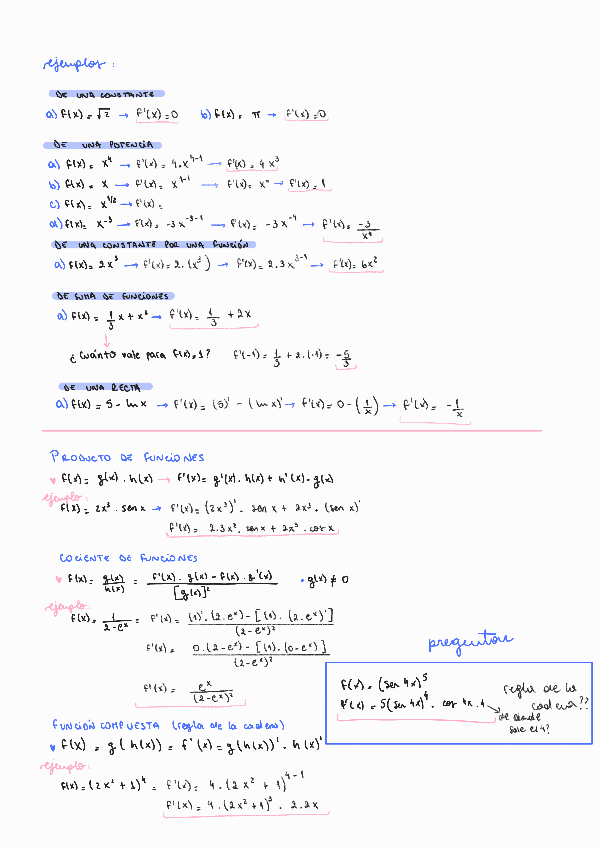 ejemplos :
DE UNA CONSTANTE
a) f(x) = √2 → f'(x) = 0 b) f(x) = π → f'(x) = 0
DE UNA POTENCIA
a) f(x) = x⁴ → f'(x) = 4.x⁴⁻¹ → f'(x) = 4x³
b) f(x) = x → f'(x) = x¹⁻¹ → f'(x) = x⁰ → f'(x) = 1
c) f(x) = x^1/2 → f'(x) =
d) f(x) = x⁻³ → f'(x) = -3x⁻³⁻¹ → f'(x) = -3x⁻⁴ → f'(x) = -3/x⁴
DE UNA CONSTANTE POR UNA FUNCIÓN
a) f(x) = 2x³ → f'(x) = 2.(x³) → f'(x) = 2.3x³⁻¹ → f'(x) = 6x²
DE SUMA DE FUNCIONES
a) f(x) = 1/3 x + x² → f'(x) = 1/3 + 2x
¿ Cuánto vale para f(x)=1? f'(-1) = 1/3 + 2.(-1) = -5/3
DE UNA RECTA
a) f(x) = 5 - ln x → f'(x) = (5)' - (ln x)' → f'(x) = 0 - (1/x) → f'(x) = -1/x
PRODUCTO DE FUNCIONES
♥ f(x) = g(x) . h(x) → f'(x) = g'(x) . h(x) + h'(x) . g(x)
ejemplo:
f(x) = 2x³ . sen x → f'(x) = (2x³)' . sen x + 2x³ . (sen x)'
f'(x) = 2.3x² . sen x + 2x³ . cos x
COCIENTE DE FUNCIONES
♥ f(x) = g(x)/h(x) = f'(x) . g(x) - f(x) . g'(x) / [g(x)]² • g(x) ≠ 0
ejemplo:
f(x) = 1/2-eˣ = f'(x) = (1)' . (2-eˣ) - [(1) . (2-eˣ)'] / (2-eˣ)²
f'(x) = 0.(2-eˣ) - [(1) . (0-eˣ)] / (2-eˣ)²
f'(x) = eˣ / (2-eˣ)²
preguntar
f(x) = (sen 4x)⁵
f'(x) = 5(sen 4x)⁴ . cos 4x . 4
regla de la
cadena??
de donde
sale el 4?
FUNCIÓN COMPUESTA (regla de la cadena)
♥ f(x) = g(h(x)) = f'(x) = g(h(x))' . h(x)'
ejemplo:
f(x) = (2x² + 1)⁴ = f'(x) = 4 . (2x² + 1)⁴⁻¹
f'(x) = 4 . (2x² + 1)³ . 2.2x